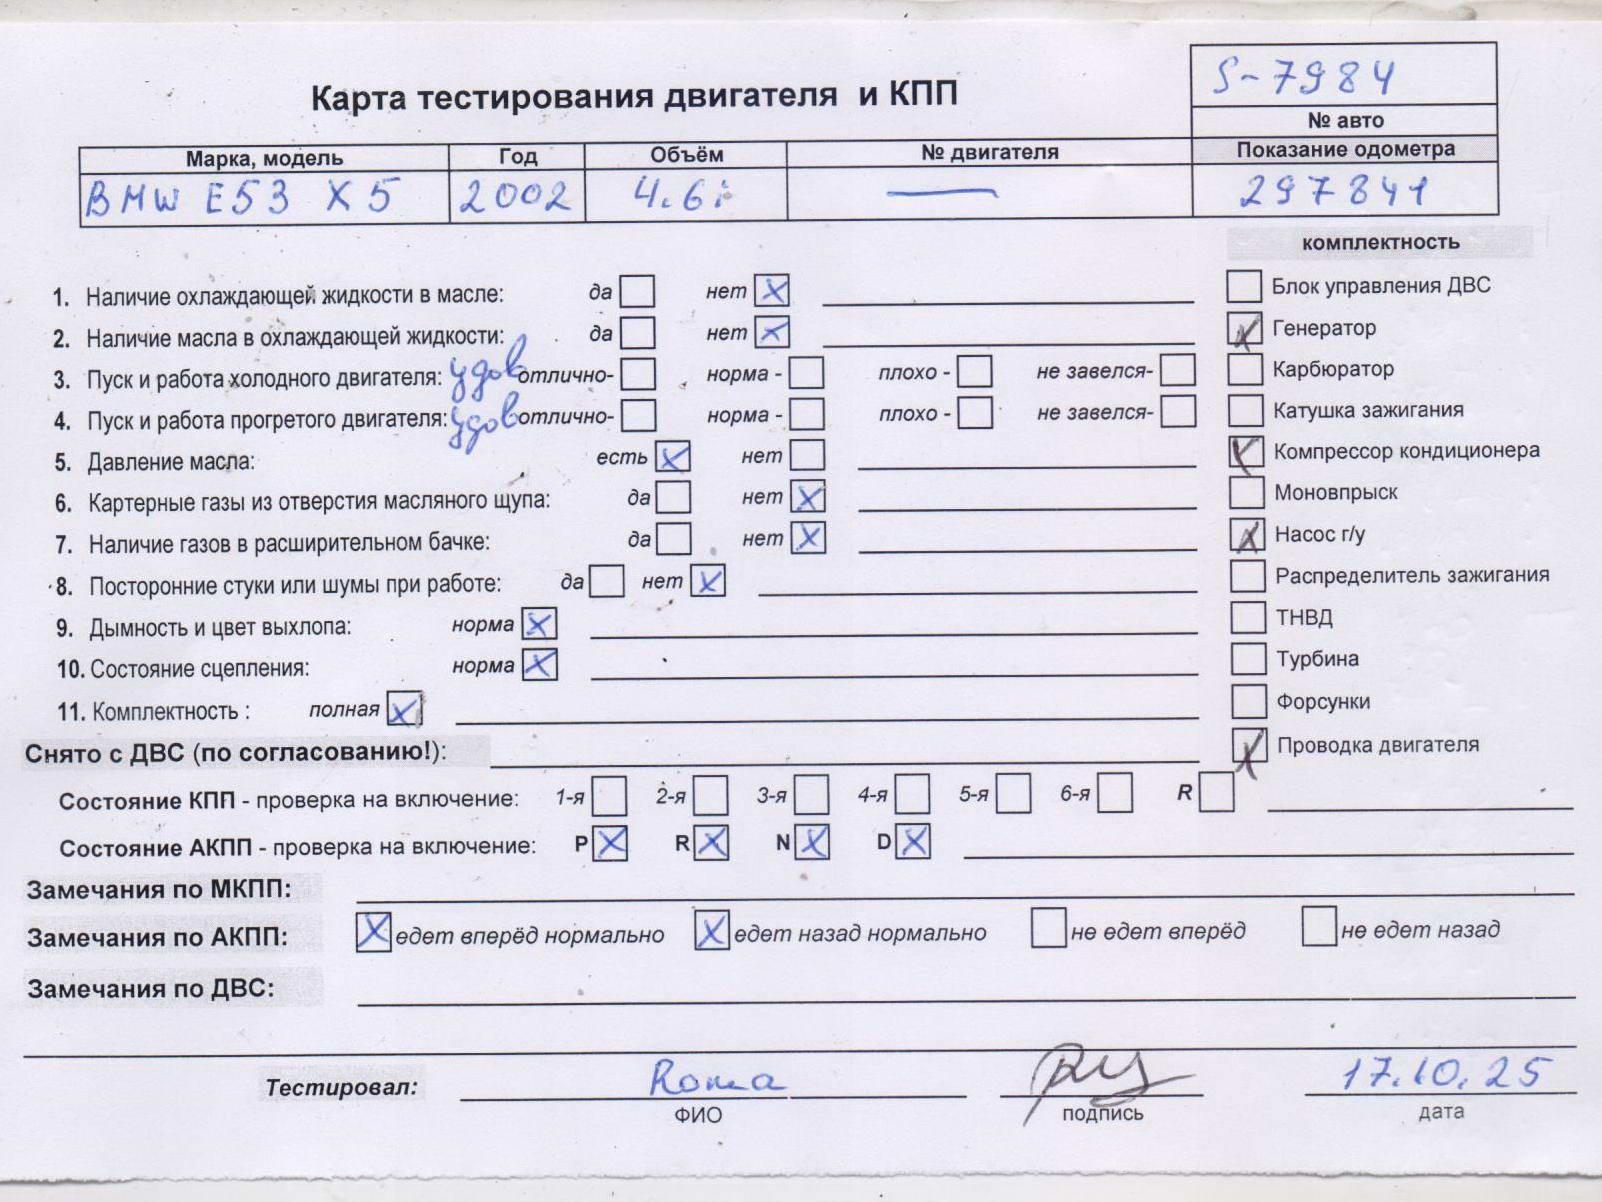 S-7984
Карта тестирования двигателя и КПП
№ авто
Марка, модель Год Объём № двигателя Показание одометра
BMW E53 X5 2002 4.6i — 297841
комплектность
1. Наличие охлаждающей жидкости в масле: да нет X
Блок управления ДВС
2. Наличие масла в охлаждающей жидкости: да нет X
X Генератор
3. Пуск и работа холодного двигателя: удов отлично- норма - плохо - не завелся-
Карбюратор
4. Пуск и работа прогретого двигателя: удов отлично- норма - плохо - не завелся-
Катушка зажигания
5. Давление масла: есть X нет
X Компрессор кондиционера
6. Картерные газы из отверстия масляного щупа: да нет X
Моновпрыск
7. Наличие газов в расширительном бачке: да нет X
X Насос г/у
8. Посторонние стуки или шумы при работе: да нет X
Распределитель зажигания
9. Дымность и цвет выхлопа: норма X
ТНВД
10. Состояние сцепления: норма X
Турбина
11. Комплектность : полная X
Форсунки
Снято с ДВС (по согласованию!):
X Проводка двигателя
Состояние КПП - проверка на включение: 1-я 2-я 3-я 4-я 5-я 6-я R
Состояние АКПП - проверка на включение: P X R X N X D X
Замечания по МКПП:
Замечания по АКПП: X едет вперёд нормально X едет назад нормально не едет вперёд не едет назад
Замечания по ДВС:
Тестировал: Roma 17.10.25
ФИО подпись дата